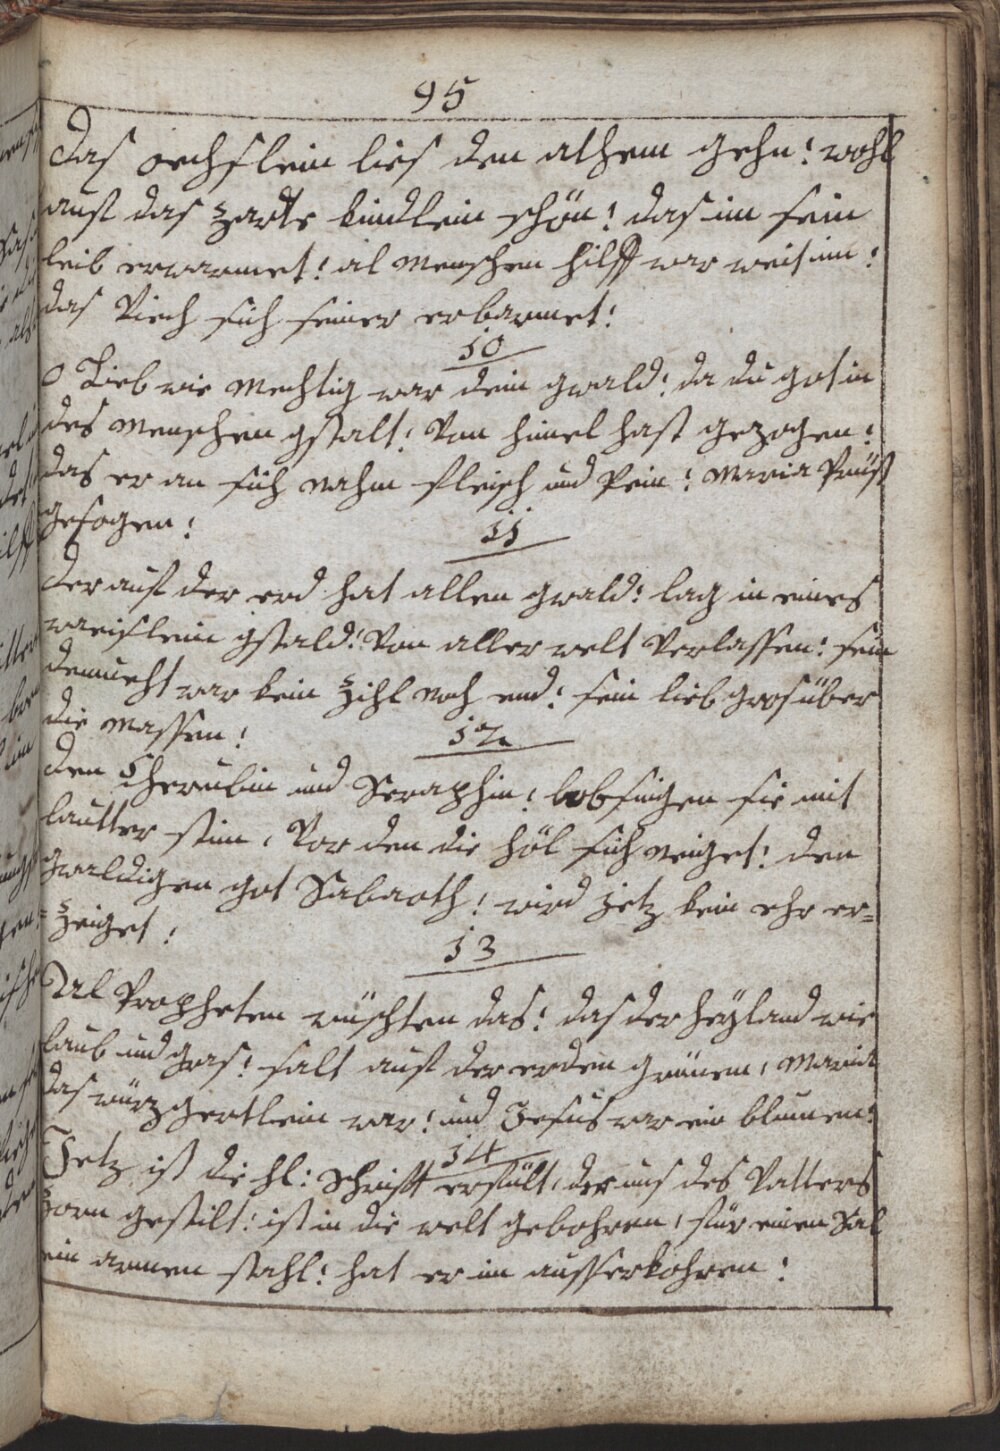 95
das oechslein lies den athem gehn! wohl
auf das zarte kindlein schön! das im sein
leib erwarmet! al Menschen hilff war weit im!
das Viech sich seiner erbarmet!
10
O Lieb wie Mechtig war dein gwald! da du got in
des Menschen gstalt! Von himel hast gezogen!
das er an sich nahm fleisch und Pein! Maria Prüst
gesogen!
11
der auf der erd hat allen gwald! lag in eines
waislein gstald! Von aller welt Verlassen! sein
demueht war kein Zihl noch end! sein lieb gros über
die Massen!
12
den Cherubin und Seraphin! lobsingen sie mit
lautter stim, Vor den die höl sich neiget! den
gwaldigen got Sabaoth! wird jetz kein ehr er=
=zeiget!
13
Al Propheten wüschten das! das der heyland wie
laub und gras! solt auf der erden grünen, Maria
das würzgertlein war! und Jesus war ein blumen!
14
Jetz ist die hl: Schrifft erfült, der uns des Vatters
zorn gestilt! ist in die welt gebohren, für einen Sal
ein armen stahl! hat er im ausserkohren!